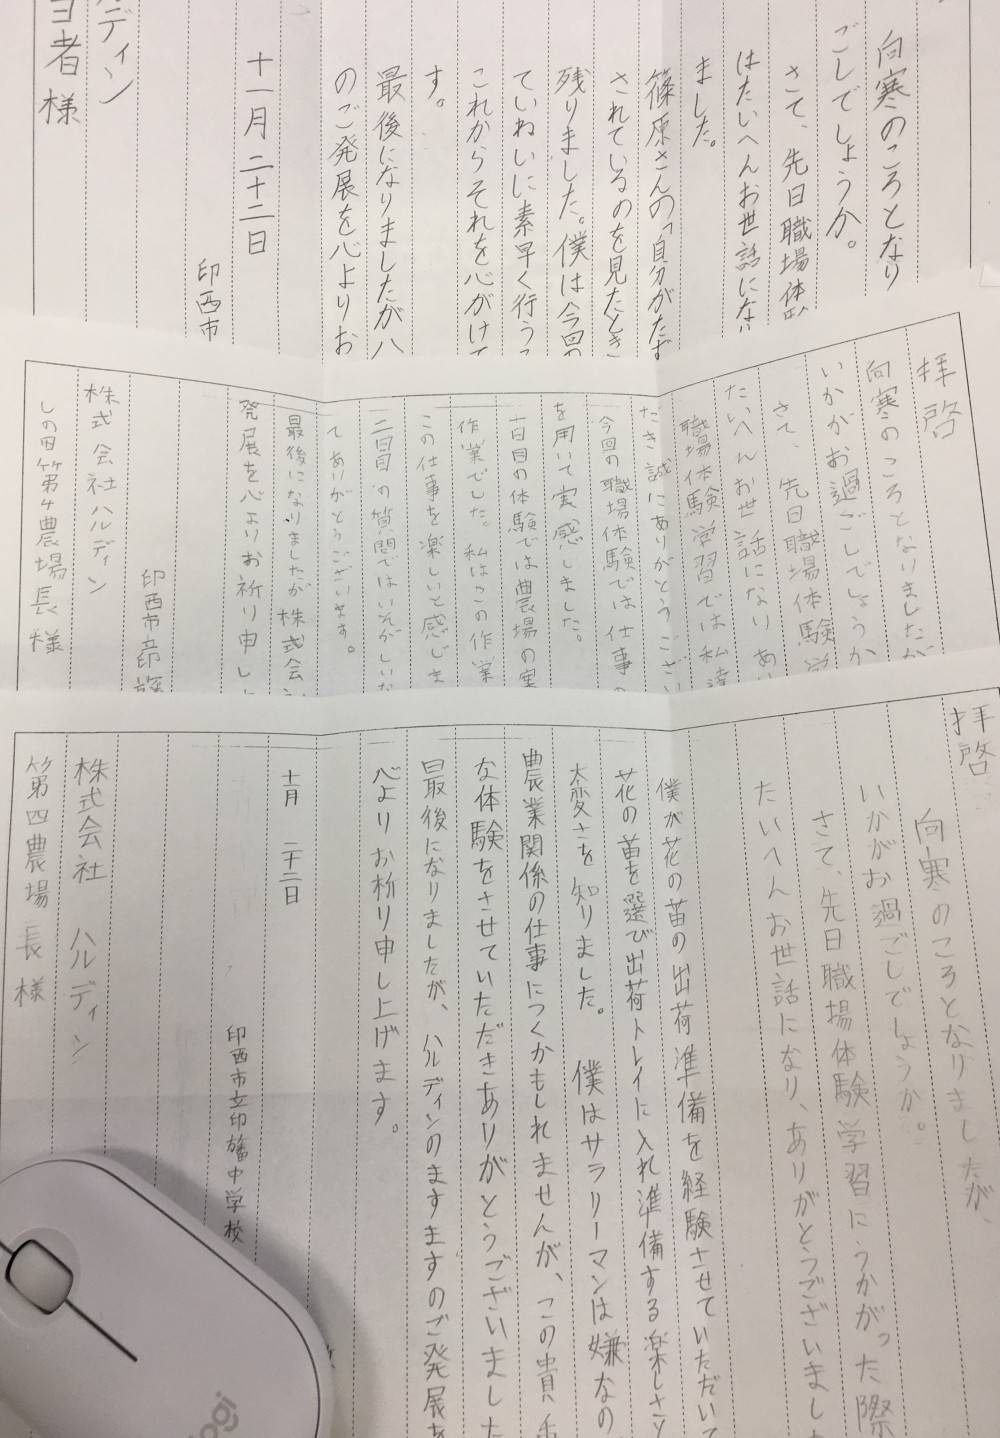 向寒のころとなり
ごしでしょうか。
さて、先日職場体
はたいへんお世話にな
ました。
篠原さんの「自分がたず
されているのを見たとき
残りました。僕は今回の
ていねいに素早く行う
これからそれを心がけて
す。
最後になりましたがハ
のご発展を心よりお
十一月二十二日
印西市
ディン
者様
拝啓
向寒のころとなりましたが
いかがお過ごしでしょうか
さて、先日職場体験学
たいへんお世話になり あ
職場体験学習では私達
だき誠にありがとうござい
今回の職場体験では仕事の
を用いて実感しました。
一日目の体験では農場の実
作業でした。私はこの作業
この仕事を楽しいと感じま
二日目の質問ではいそがしいな
てありがとうございます。
最後になりましたが株式会
発展を心よりお祈り申し上
印西市立印旛
株式会社ハルディン
しの田第4農場長様
拝啓
向寒のころとなりましたが、
いかがお過ごしでしょうか。
さて、先日職場体験学習にうかがった際
たいへんお世話になり、ありがとうございまし
僕が花の苗の出荷準備を経験させていただいて
花の苗を選び出荷トレイに入れ準備する楽しさと
大変さを知りました。 僕はサラリーマンは嫌なの
農業関係の仕事につくかもしれませんが、この貴
な体験をさせていただきありがとうございました
最後になりましたが、ハルディンのますますのご発展を
心よりお祈り申し上げます。
十一月 二十二日
印西市立印旛中学校
株式会社 ハルディン
第四農場長様
logi